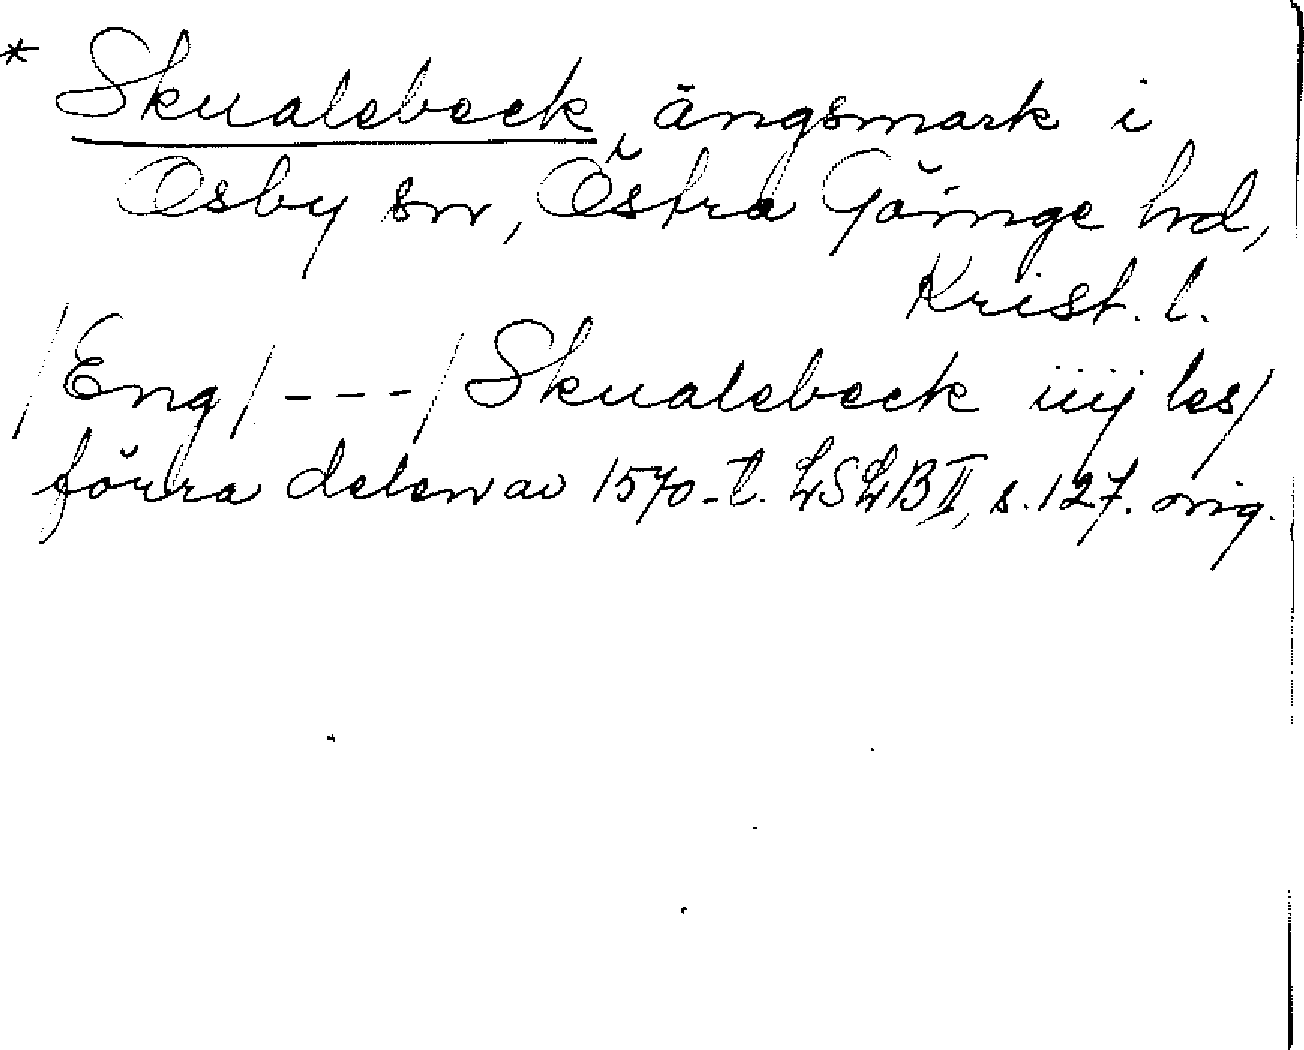 * Skualebeck, ängsmark i
Osby sn, Östra Göinge hd,
Krist. l.
/Eng/ - - - / Skualebeck iiij les/
förra delen av 1570-t. LSLB II, s. 127. orig.